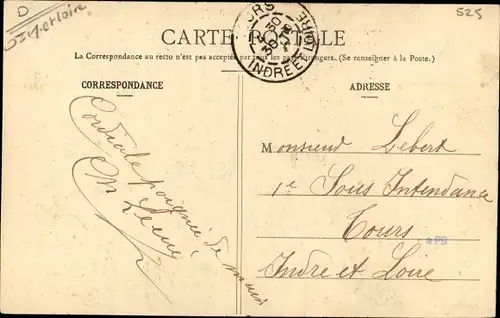 D
525
CARTE POSTALE
La Correspondance au recto n'est pas acceptée par tous les pays étrangers. (Se renseigner à la Poste.)
CORRESPONDANCE
ADRESSE
TOURS
INDRE ET LOIRE
Cordiale poignée de main
Monsieur Lebert
1e Sous Intendance
Tours
Indre et Loire
PB